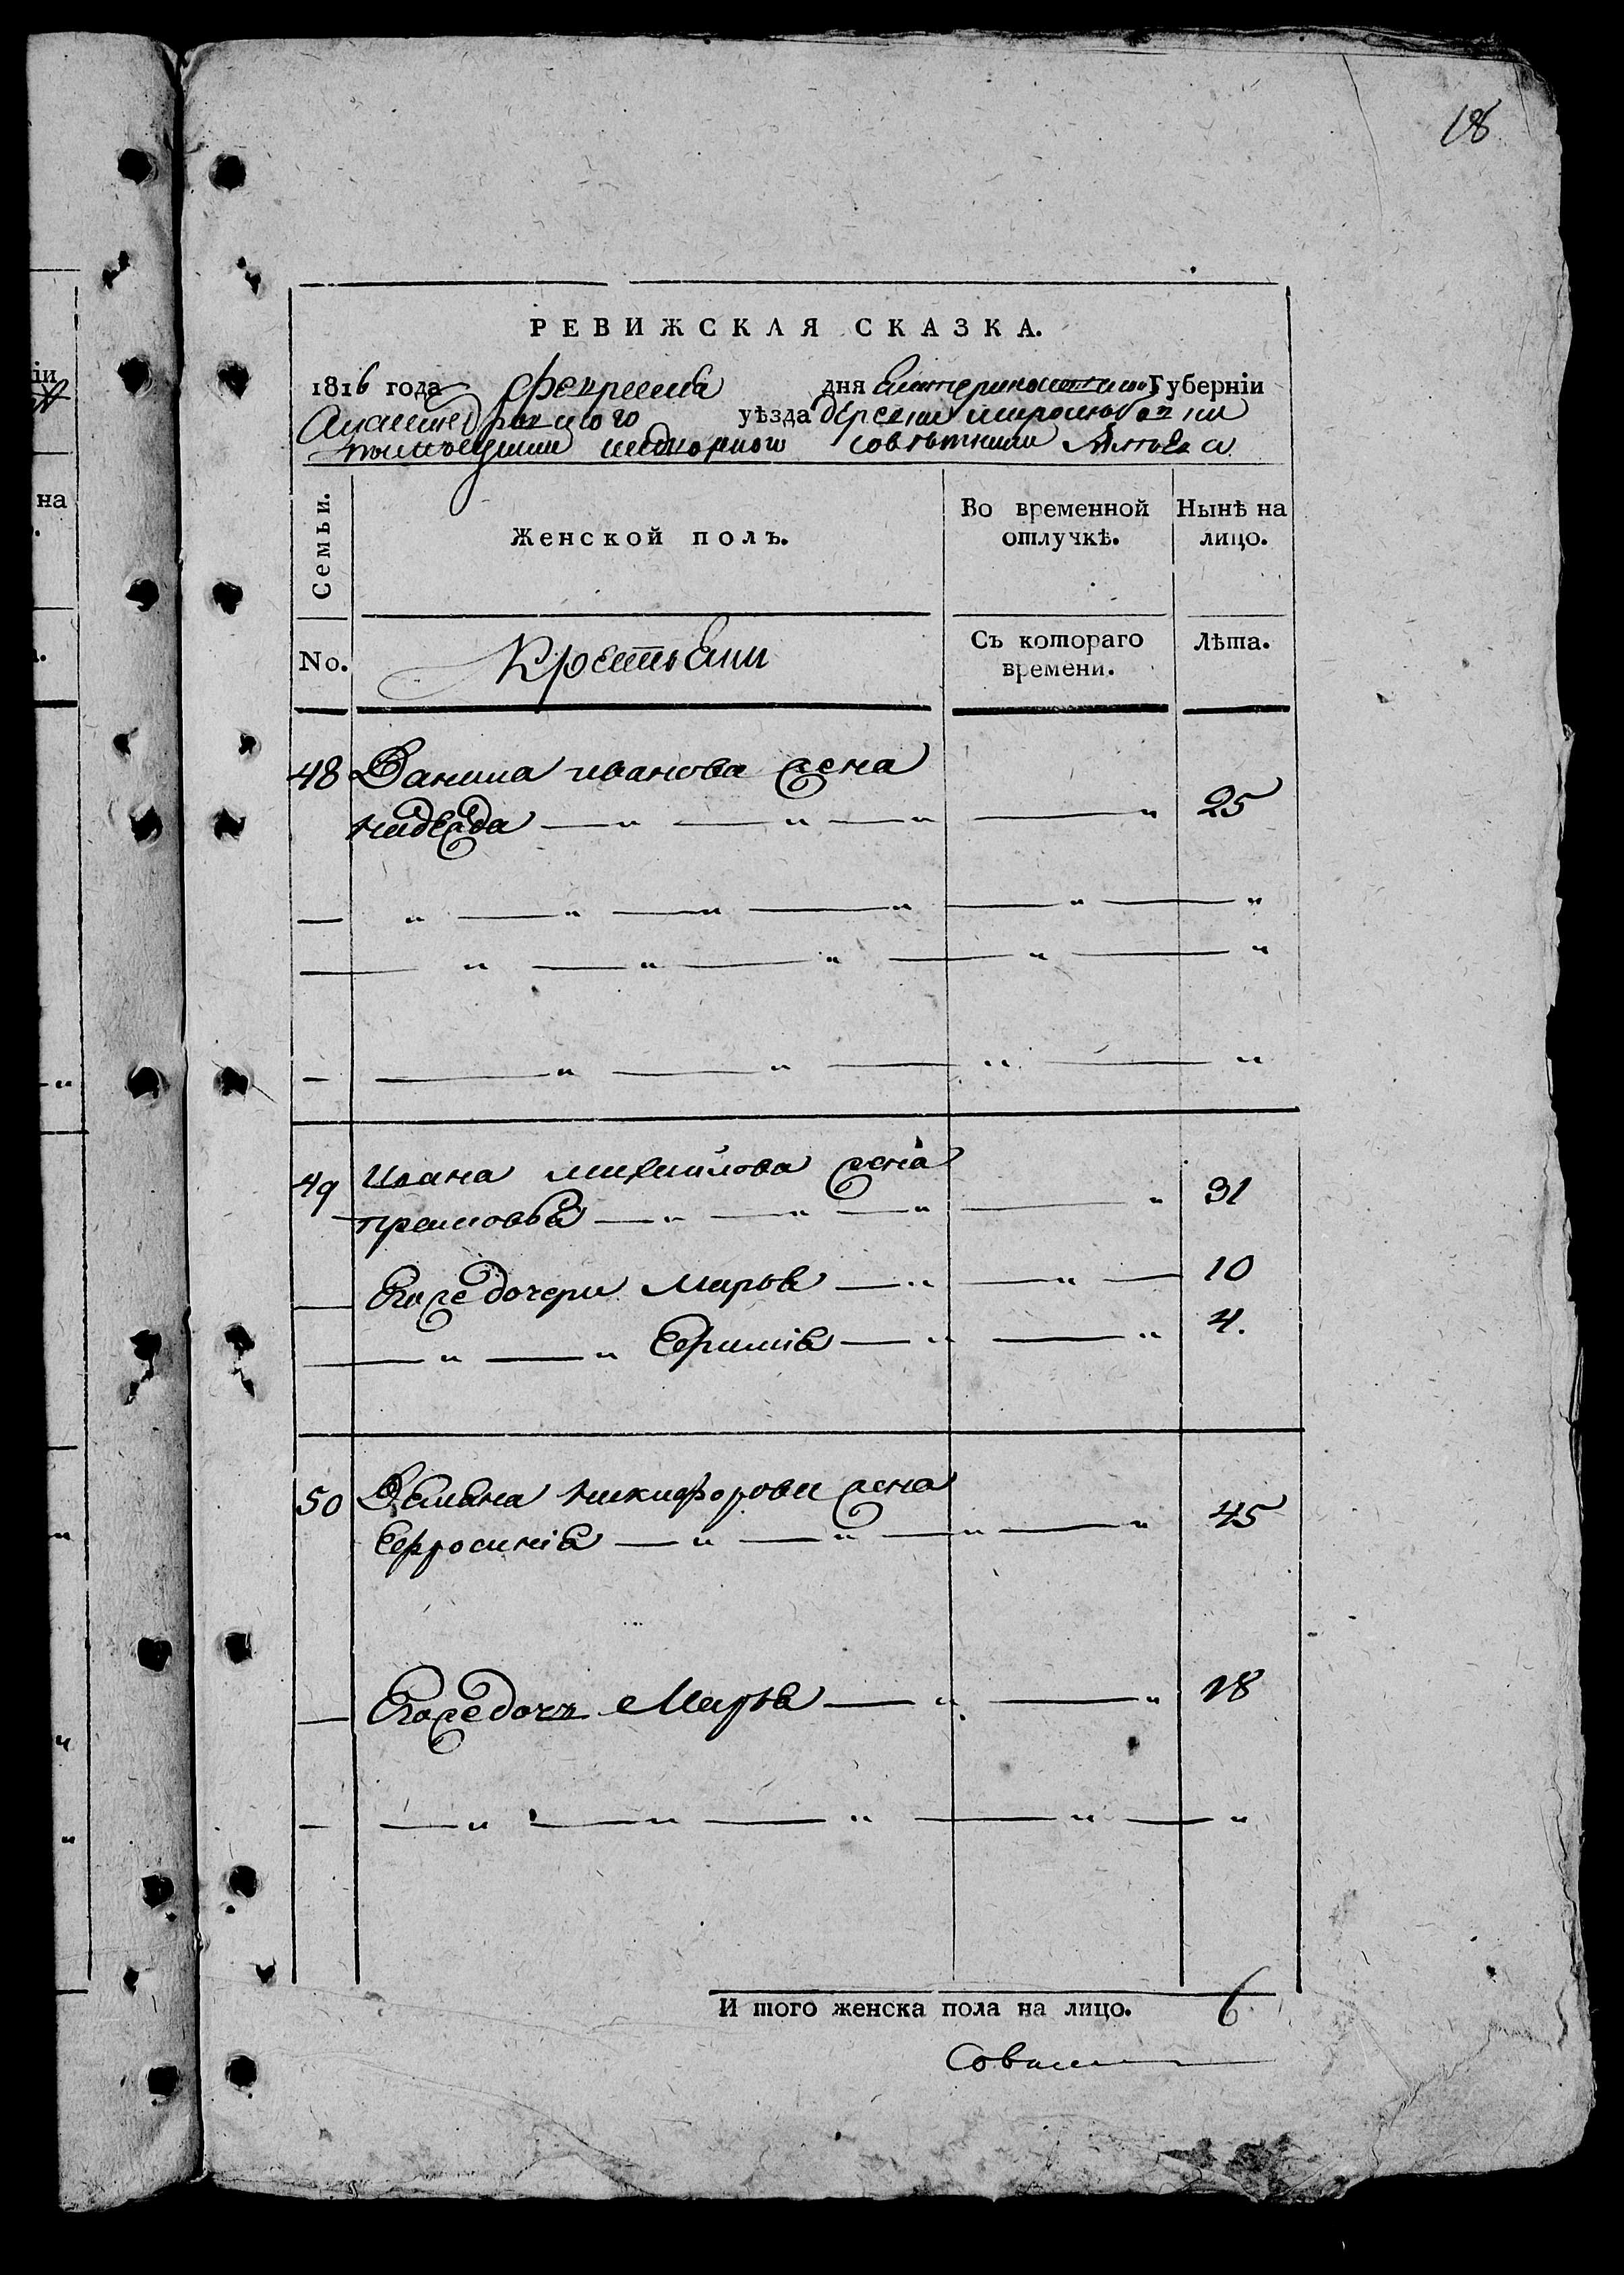 18
РЕВИЖСКАЯ СКАЗКА.
1816 года февраля дня Екатеринославской Губерніи
уѣзда деревни
помѣщика надворного совѣтника
Семьи.
Женской полъ.
Во временной отлучкѣ.
Нынѣ на лицо.
No.
Крестьяни
Съ котораго времени.
Лѣта.
48 Данила иванова жена
надежда — „ — „ — „ — „ 25
49 Ивана михайлова жена
прасковья — „ — „ — „ — „ 31
Его же дочери Марья — „ — „ — 10
— „ — „ Ефимія — „ — „ 4.
50 Демьяна никифорова жена
Ефросинія — „ — „ — „ — „ 45
Его же дочь Марья — „ — „ 18
И того женска пола на лицо. 6